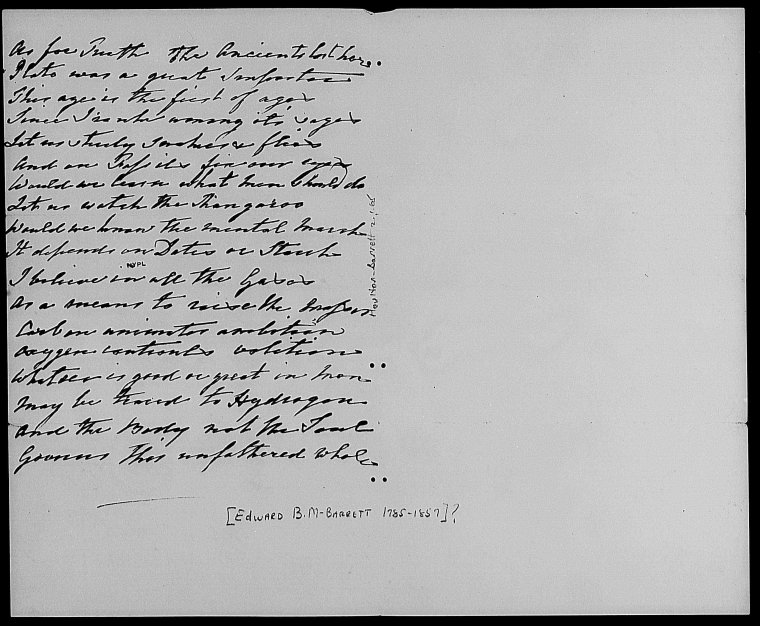 As for Truth the Ancients lost her
Plato was a great Impostor
This age is the first of ages
Since I rank among it's sages
Let us study snakes & flies
And on Fossils fix our eyes
Would we learn what Man should do
Let us watch the Kangaroo
Would we know the mental march
It depends on Dates or Starch
NYPL
I believe in all the Gases
As a means to raise the masses
Carbon animates ambition
oxygen controuls volition
Whatever is good or great in Man
May be traced to Hydrogen
And the Body not the Soul
Governs this unfathered whole
Moulton-Barrett
[EDWARD B. M-BARRETT 1785-1857]?